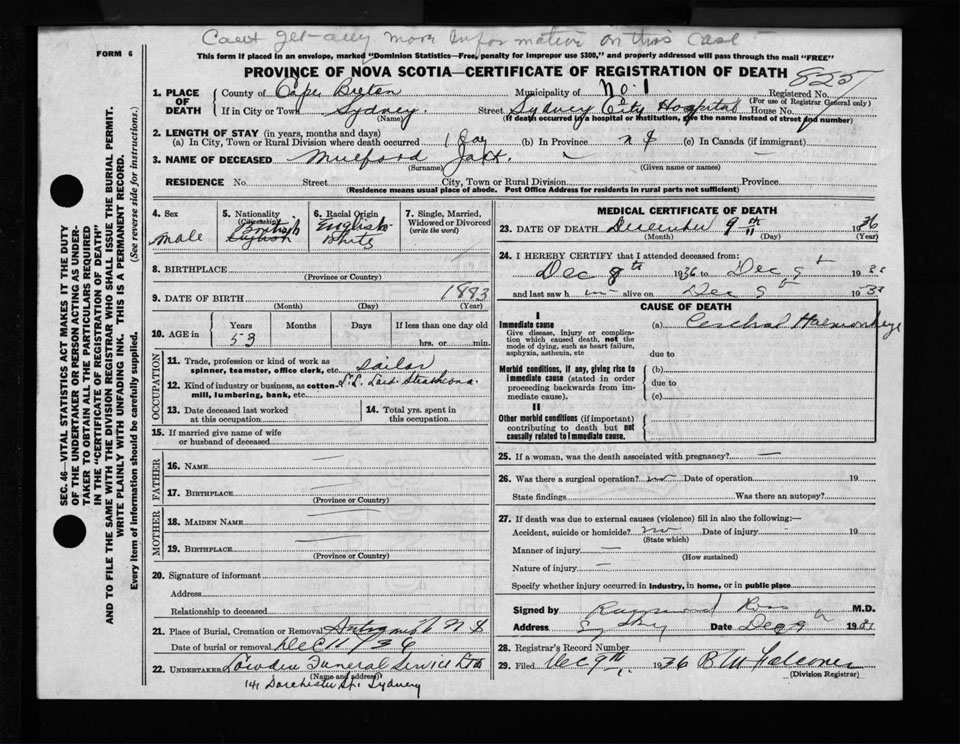 Cant get any more information on this case
FORM 6
This form if placed in an envelope, marked "Dominion Statistics—Free, penalty for improper use $300," and properly addressed will pass through the mail "FREE"
PROVINCE OF NOVA SCOTIA—CERTIFICATE OF REGISTRATION OF DEATH
1. PLACE OF DEATH
County of Cape Breton
Municipality of No. 1
Registered No.
(For use of Registrar General only)
If in City or Town Sydney (Name)
Street Sydney City Hospital House No.
(If death occurred in a hospital or institution, give the name instead of street and number)
2. LENGTH OF STAY (in years, months and days)
(a) In City, Town or Rural Division where death occurred 1 Day (b) In Province (c) In Canada (if immigrant)
3. NAME OF DECEASED Mulford Jack.
(Surname) (Given name or names)
RESIDENCE No. Street City, Town or Rural Division Province
(Residence means usual place of abode. Post Office Address for residents in rural parts not sufficient)
4. Sex
male
5. Nationality (Citizenship)
British
6. Racial Origin
English
White
7. Single, Married, Widowed or Divorced (write the word)
8. BIRTHPLACE
(Province or Country)
9. DATE OF BIRTH 1883
(Month) (Day) (Year)
10. AGE in Years Months Days If less than one day old
53 hrs. or min.
OCCUPATION
11. Trade, profession or kind of work as spinner, teamster, office clerk, etc. Sailor
12. Kind of industry or business, as cotton-mill, lumbering, bank, etc. Strathcona
13. Date deceased last worked at this occupation
14. Total yrs. spent in this occupation
15. If married give name of wife or husband of deceased
FATHER
16. NAME
17. BIRTHPLACE
(Province or Country)
MOTHER
18. MAIDEN NAME
19. BIRTHPLACE
(Province or Country)
20. Signature of informant
Address
Relationship to deceased
21. Place of Burial, Cremation or Removal Antigonish N S
Date of burial or removal Dec 11/36
22. UNDERTAKER Lowden Funeral Service Ltd
(Name and address)
141 Dorchester St. Sydney
MEDICAL CERTIFICATE OF DEATH
23. DATE OF DEATH December 9th 1936
(Month) (Day) (Year)
24. I HEREBY CERTIFY that I attended deceased from:
Dec 8th 1936 to Dec 9th 19
and last saw h im alive on Dec 9th 19
CAUSE OF DEATH
I
Immediate cause
Give disease, injury or complication which caused death, not the mode of dying, such as heart failure, asphyxia, asthenia, etc
(a) Cerebral Haemorrhage
due to
Morbid conditions, if any, giving rise to immediate cause (stated in order proceeding backwards from immediate cause).
(b)
due to
(c)
II
Other morbid conditions (if important) contributing to death but not causally related to immediate cause.
25. If a woman, was the death associated with pregnancy?
26. Was there a surgical operation? no Date of operation 19
State findings Was there an autopsy?
27. If death was due to external causes (violence) fill in also the following:—
Accident, suicide or homicide? no Date of injury 19
(State which)
Manner of injury
(How sustained)
Nature of injury
Specify whether injury occurred in industry, in home, or in public place
Signed by Raymond Ross M.D.
Address Sydney Date Dec 9th 19
28. Registrar's Record Number
29. Filed Dec 9th 1936 B M Falconer
(Division Registrar)
SEC. 46—VITAL STATISTICS ACT MAKES IT THE DUTY
OF THE UNDERTAKER OR PERSON ACTING AS UNDER-
TAKER TO OBTAIN ALL THE PARTICULARS REQUIRED
IN THE "CERTIFICATE OF REGISTRATION OF DEATH"
AND TO FILE THE SAME WITH THE DIVISION REGISTRAR WHO SHALL ISSUE THE BURIAL PERMIT.
WRITE PLAINLY WITH UNFADING INK. THIS IS A PERMANENT RECORD.
Every item of information should be carefully supplied. (See reverse side for instructions.)